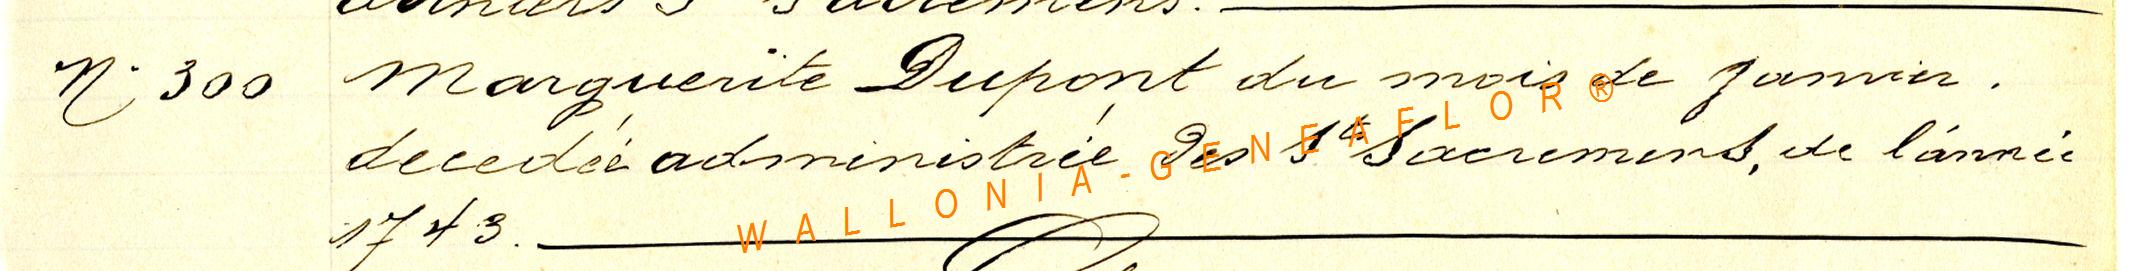 derniers Sts Sacremens.
N° 300 Marguerite Dupont du mois de Janvier.
decedée administrée des Sts Sacremens, de l'année
1743.
WALLONIA-GENEAFLOR®